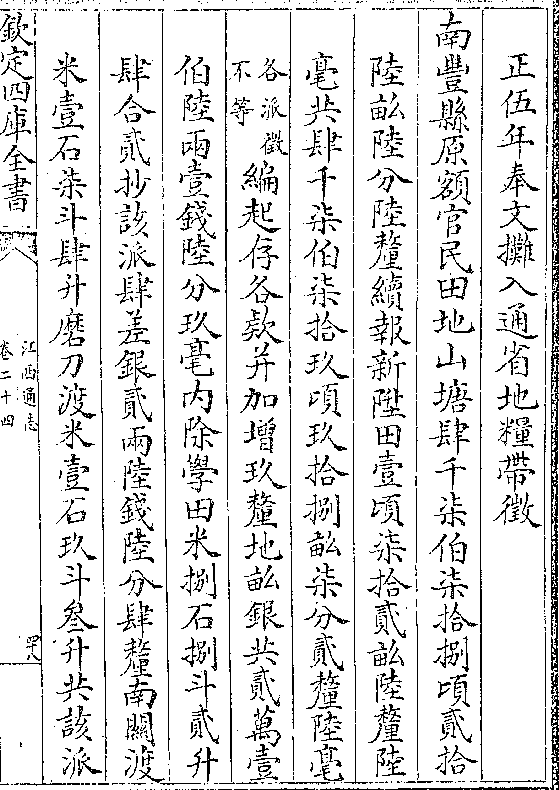 正伍年奉文攤入通省地糧帶徵
南豐縣原額官民田地山塘肆千柒伯柒拾捌頃貳拾
陸畝陸分陸釐續報新陞田壹頃柒拾貳畝陸釐陸
毫共肆千柒伯柒拾玖頃玖拾捌畝柒分貳釐陸毫
各派徵
不等
編起存各欵并加增玖釐地畝銀共貳萬壹
伯陸兩壹錢陸分玖毫内除學田米捌石捌斗貳升
肆合貳抄該派肆差銀貳兩陸錢陸分肆釐南關渡
米壹石柒斗肆升磨刀渡米壹石玖斗叁升共該派
欽定四庫全書
江西通志
卷二十四
四十八